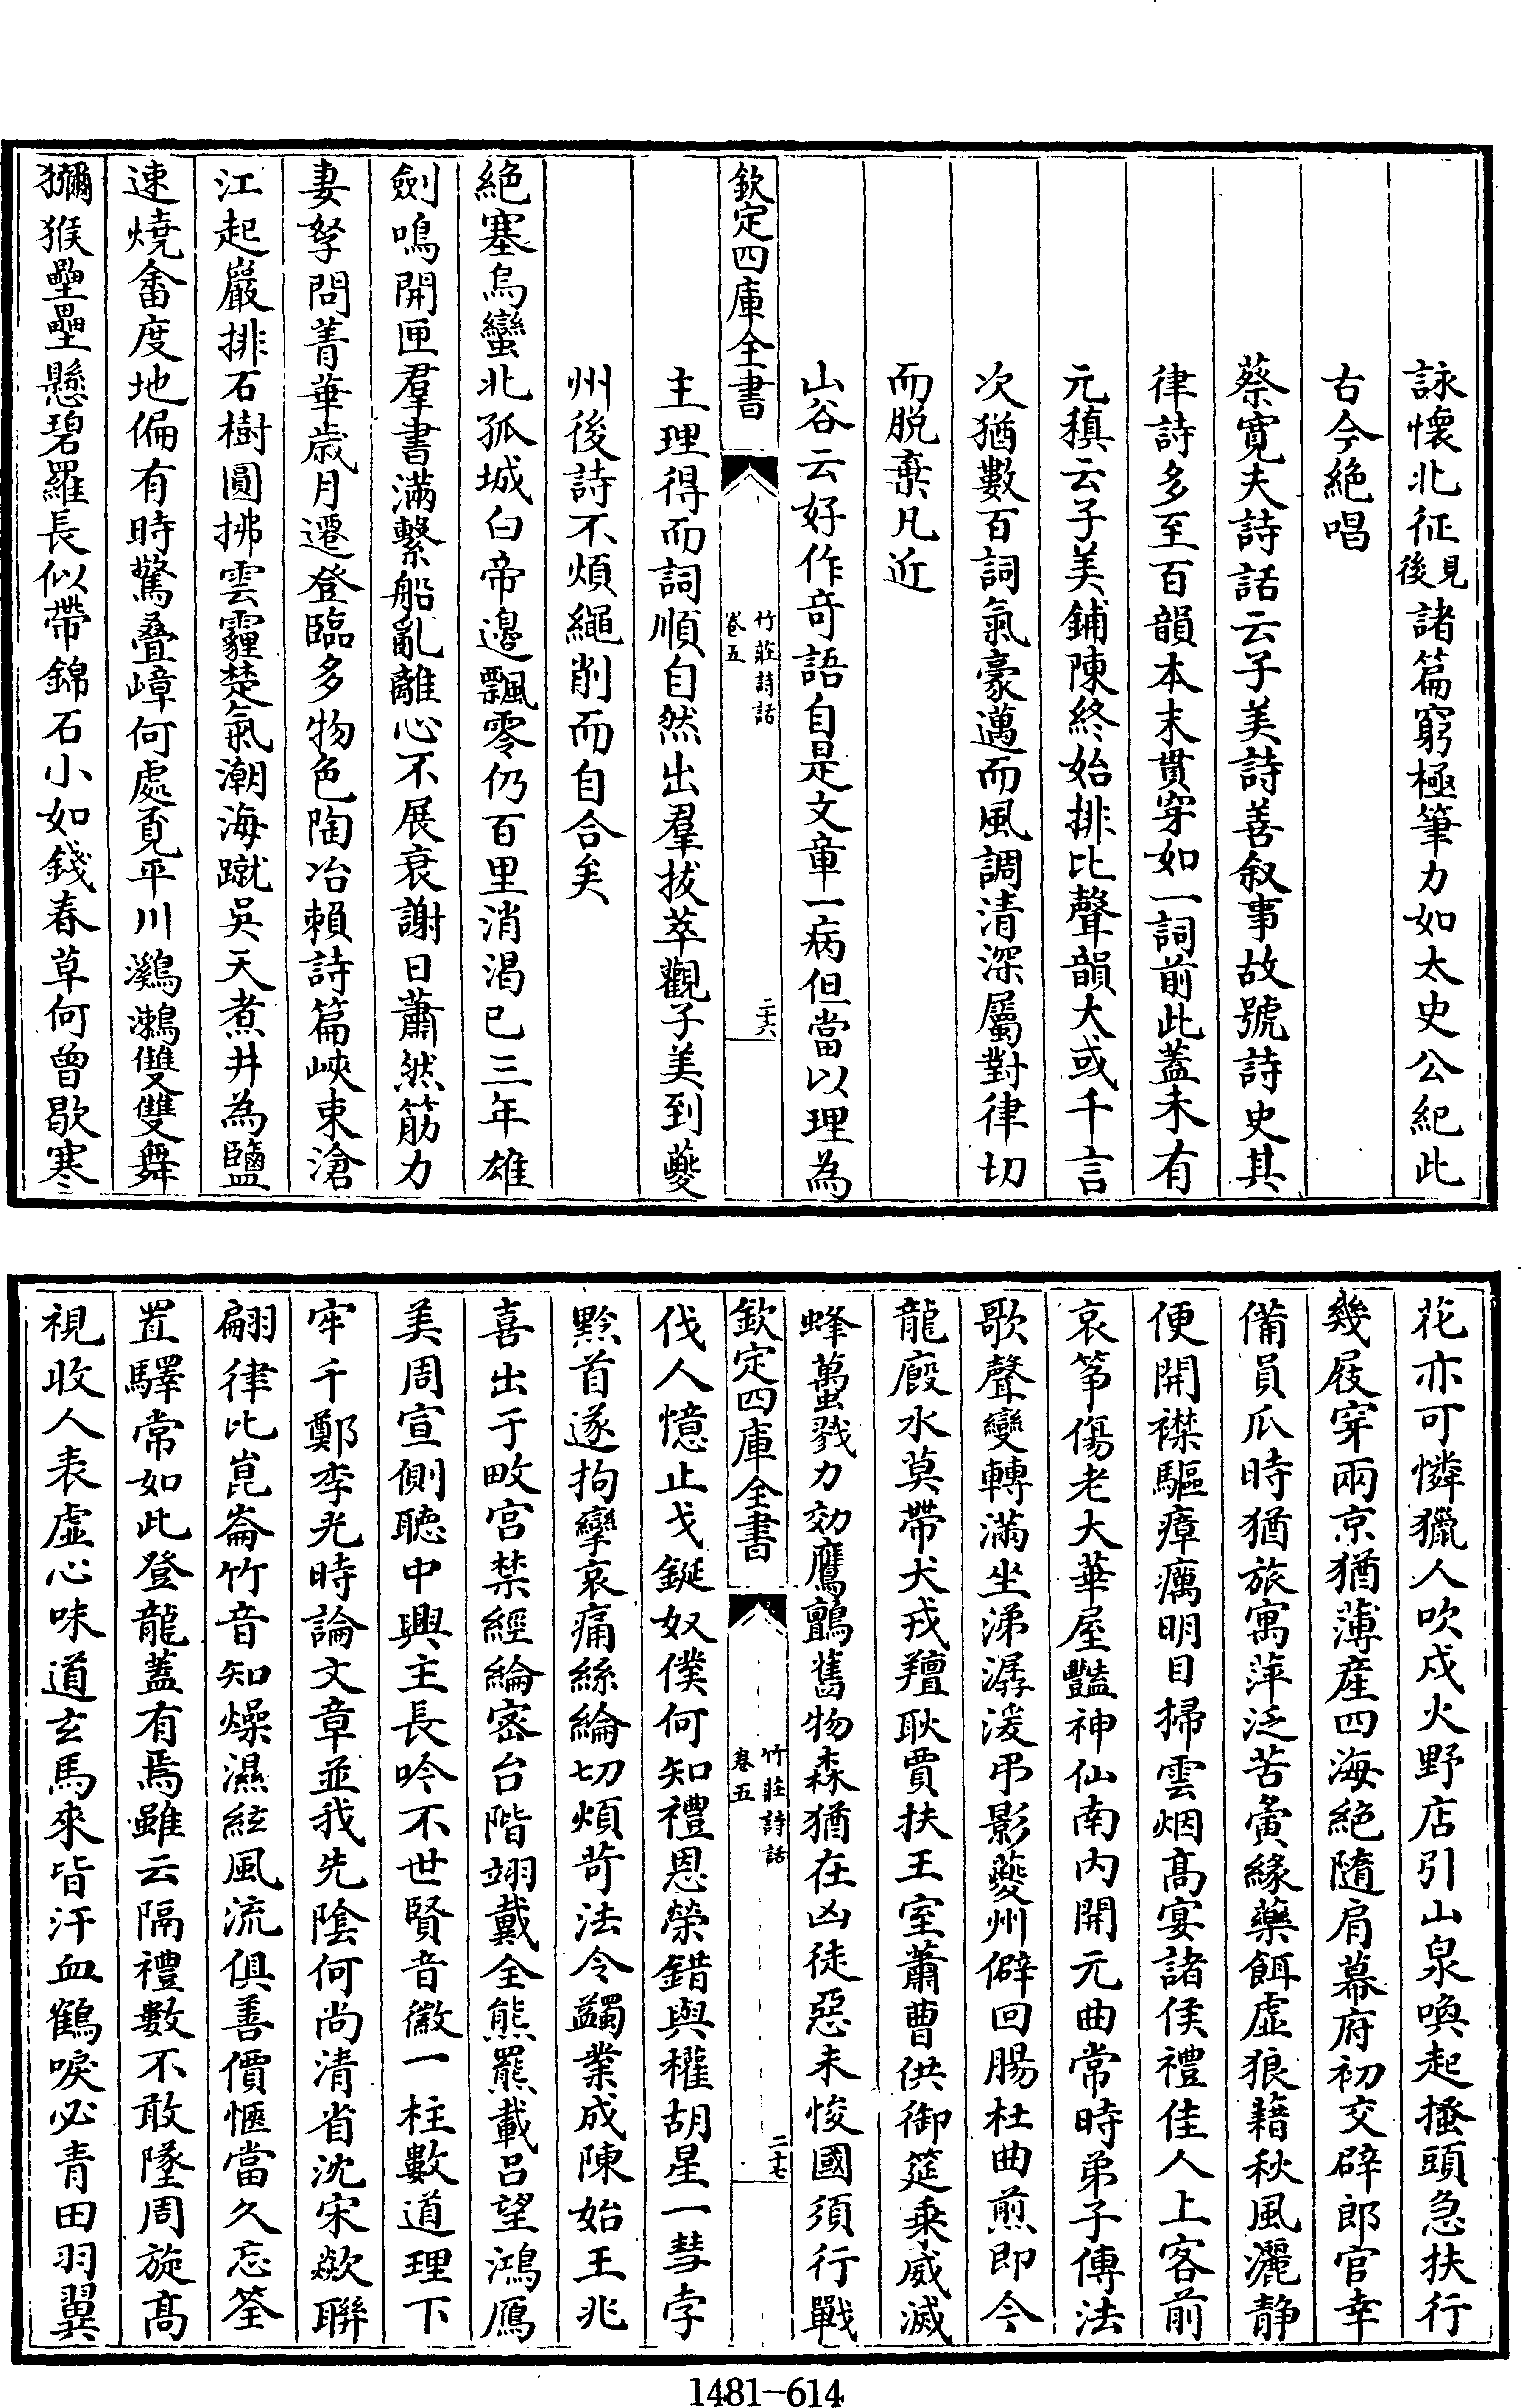 詠懷北征見後諸篇窮極筆力如太史公紀此
古今絶唱
蔡寛夫詩話云子美詩善叙事故號詩史其
律詩多至百韻本末貫穿如一詞前此蓋未有
元稹云子美鋪陳終始排比聲韻大或千言
次猶數百詞氣豪邁而風調清深屬對律切
而脱棄凡近
山谷云好作竒語自是文章一病但當以理為
欽定四庫全書
竹莊詩話
卷五
二十六
主理得而詞順自然出羣拔萃觀子美到夔
州後詩不煩繩削而自合矣
絶塞烏蠻北孤城白帝邉飄零仍百里消渇已三年雄
劍鳴開匣羣書滿繫船亂離心不展衰謝日蕭然筋力
妻孥問菁華歲月遷登臨多物色陶冶賴詩篇峽束滄
江起巖排石樹圓拂雲霾楚氣潮海蹴吳天煮井為鹽
速燒畬度地偏有時驚疊嶂何處覔平川鸂鶒雙雙舞
獼猴壘壘懸碧羅長似帶錦石小如錢春草何曾歇寒
花亦可憐獵人吹戍火野店引山泉喚起搔頭急扶行
幾屐穿兩京猶薄産四海絶隨肩幕府初交辟郎官幸
備員瓜時猶旅寓萍泛苦夤緣藥餌虛狼藉秋風灑静
便開襟驅瘴癘明目掃雲烟髙宴諸侯禮佳人上客前
哀筝傷老大華屋豔神仙南内開元曲常時弟子傳法
歌聲變轉滿坐涕潺湲弔影夔州僻回腸杜曲煎即今
龍廐水莫帶犬戎羶耿賈扶王室蕭曹供御筵乗威滅
蜂蠆戮力効鷹鸇舊物森猶在凶徒惡未悛國須行戰
欽定四庫全書
竹莊詩話
卷五
二十七
伐人憶止戈鋋奴僕何知禮恩榮錯與權胡星一彗孛
黔首遂拘攣哀痛絲綸切煩苛法令蠲業成陳始王兆
喜出于畋宫禁經綸密台階翊戴全熊羆載吕望鴻鴈
美周宣側聽中興主長吟不世賢音徽一柱數道理下
牢千鄭李光時論文章並我先隂何尚清省沈宋歘聯
翩律比崑崙竹音知燥濕絃風流俱善價愜當久忘筌
置驛常如此登龍蓋有焉雖云隔禮數不敢墜周旋髙
視收人表虛心味道玄馬來皆汗血鶴唳必青田羽翼
1481-614